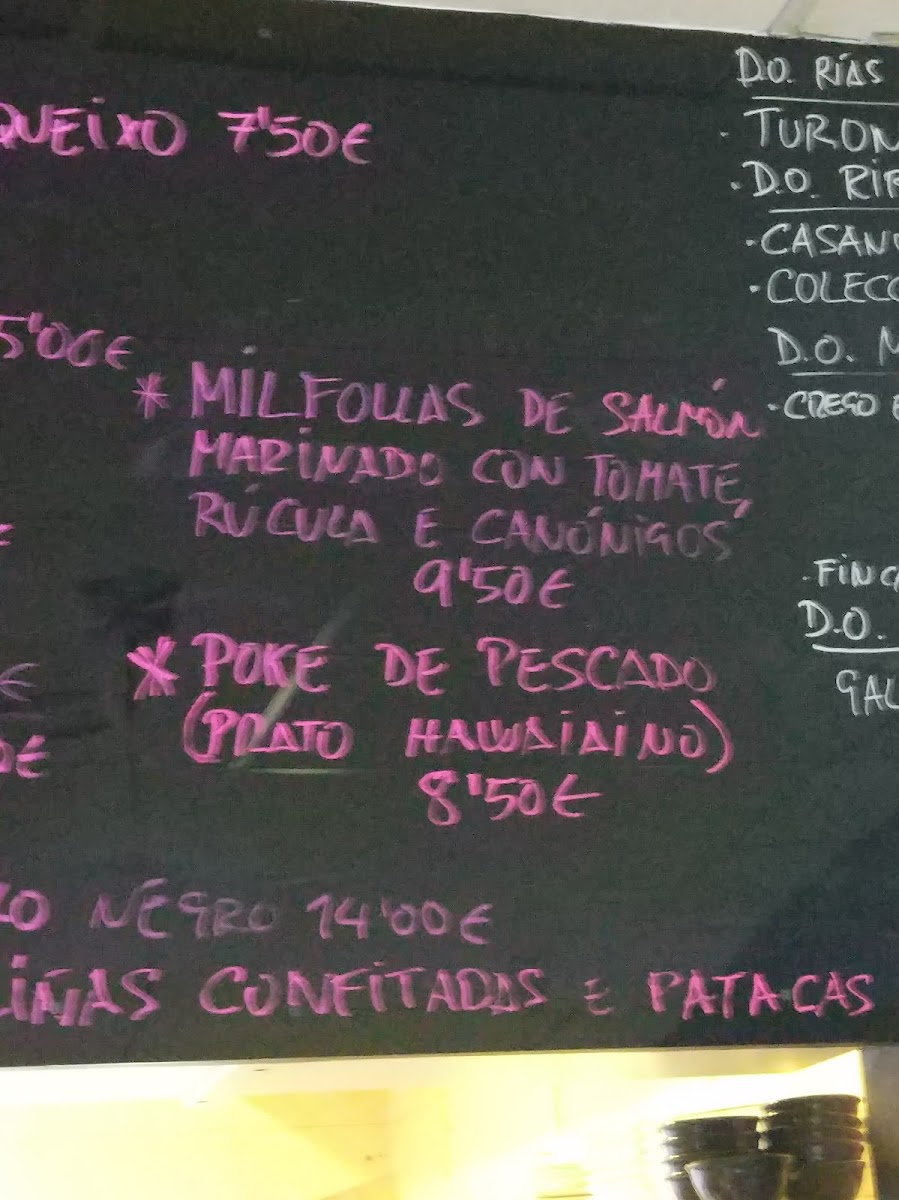 QUEIXO 7'50€
5'00€
* MILFOLLAS DE SALMÓN
MARINADO CON TOMATE,
RÚCULA E CANÓNIGOS
9'50€
* POKE DE PESCADO
(PRATO HAWAIAINO)
8'50€
NEGRO 14'00€
CONFITADAS E PATACAS
D.O. RÍAS
· TURON
· D.O. RIB
· CASANO
· COLECC
D.O. M
· CREGO E
· FINCA
D.O.
GAL